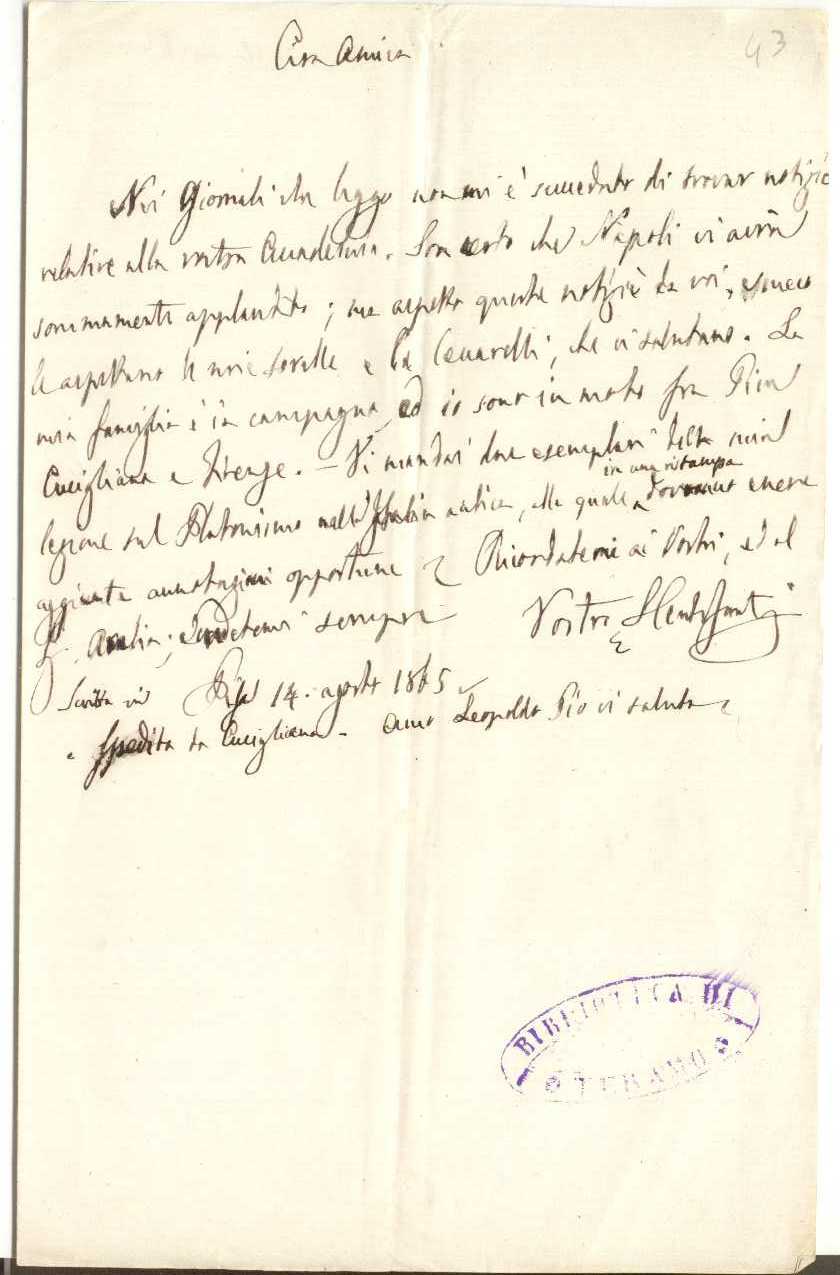 43
Cara Amica
Nei Giornali che leggo non mi è succeduto di trovar notizie
relative alla vostra Accademia. Son certo che Napoli vi avrà
sommamente applaudita; ma aspetto queste notizie da voi, e meco
le aspettano le mie sorelle e la, che vi salutano. La
mia famiglia è in campagna, ed io sono in moto fra Pisa
Cucigliana e Firenze. — Vi mandai due esemplari della mia
lezione sul Platonismo nell'Italia antica, alla quale
in una ristampa
dovranno essere
aggiunte annotazioni opportune. Ricordatemi ai Vostri, ed al
sempre Vostro
Scritta in Pisa 14. agosto 1865
e spedita da Cucigliana. Leopoldo Pio vi saluta.
BIBLIOTECA DI
TERAMO